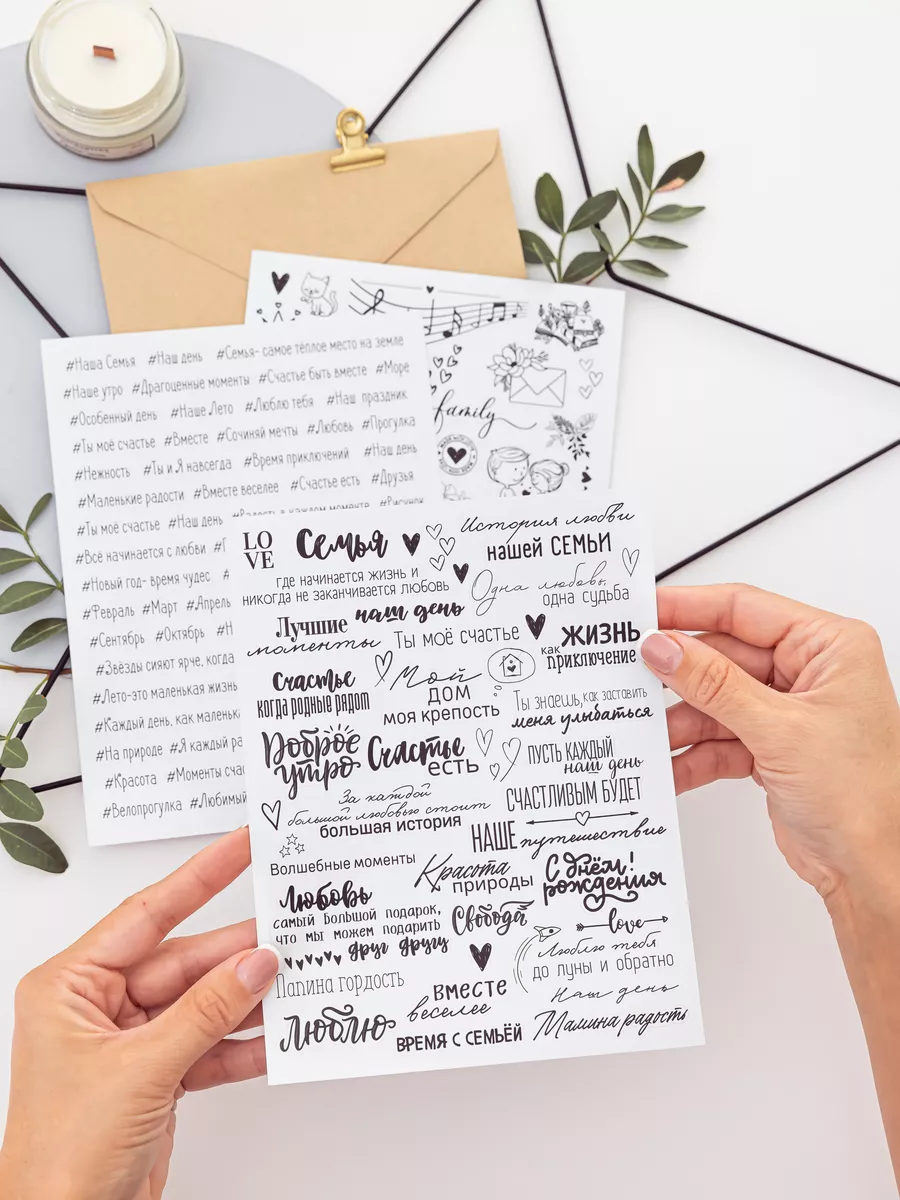 #Наша Семья #Наш день #Семья- самое тёплое место на земле
#Наше утро #Драгоценные моменты #Счастье быть вместе #Море
#Особенный день #Наше Лето #Люблю тебя #Наш праздник
#Ты моё счастье #Вместе #Сочиняй мечты #Любовь #Прогулка
#Нежность #Ты и Я навсегда #Время приключений #Наш день
#Маленькие радости #Вместе веселее #Счастье есть #Друзья
#Ты моё счастье #Наш день #Радость в каждом моменте #Рисунок
#Всё начинается с любви
#Новый год- время чудес #
#Февраль #Март #Апрель
#Сентябрь #Октябрь #Н
#Звёзды сияют ярче, когда
#Лето-это маленькая жизнь
#Каждый день, как маленька
#На природе #Я каждый ра
#Красота #Моменты счас
#Велопрогулка #Любимый
family
LO
VE
Семья
История любви
нашей СЕМЬИ
где начинается жизнь и
никогда не заканчивается любовь
Одна любовь,
одна судьба
Лучшие
моменты
наш день
Ты моё счастье
как ЖИЗНЬ
приключение
Счастье
когда родные рядом
Мой
дом
моя крепость
Ты знаешь, как заставить
меня улыбаться
Доброе
утро
Счастье
есть
пусть каждый
наш день
СЧАСТЛИВЫМ БУДЕТ
За каждой
большой любовью стоит
большая история
НАШЕ путешествие
Волшебные моменты
Красота
природы
С днём!
рождения
Любовь
самый большой подарок,
что мы можем подарить
друг другу
Свобода
love
Люблю тебя
до луны и обратно
Папина гордость
вместе
веселее
Наш день
Люблю
ВРЕМЯ С СЕМЬЁЙ
Мамина радость